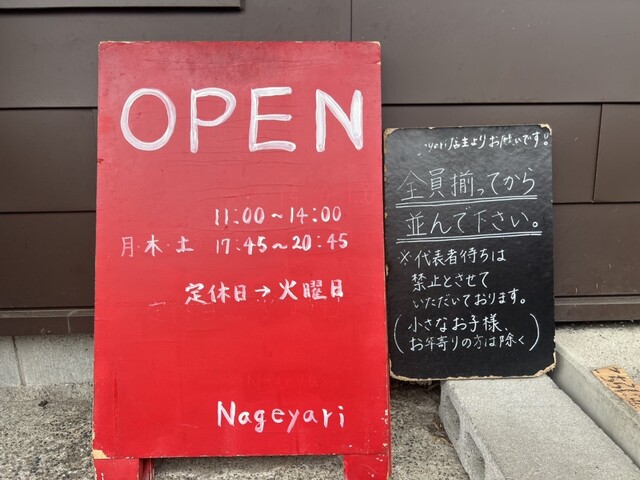 OPEN
11:00〜14:00
月・木・土 17:45〜20:45
定休日→火曜日
Nageyari
yari店主よりお願いです!
全員揃ってから
並んで下さい。
※代表者待ちは
禁止とさせて
いただいております。
(小さなお子様、
お年寄りの方は除く)